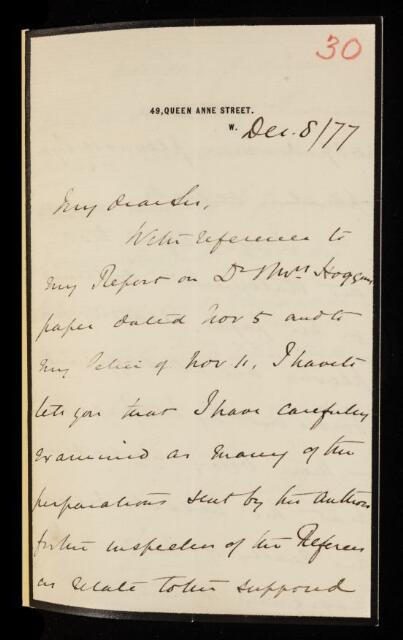 30
49, QUEEN ANNE STREET.
W.
Dec. 8/77
My dear Sir,
With reference to
my Report on Dr & Mrs Hoggan's
paper dated Nov 5 and to
my letter of Nov 11, I have to
tell you that I have carefully
examined as many of the
preparations sent by the authors
for the inspection of the Referees
as relate to the supposed